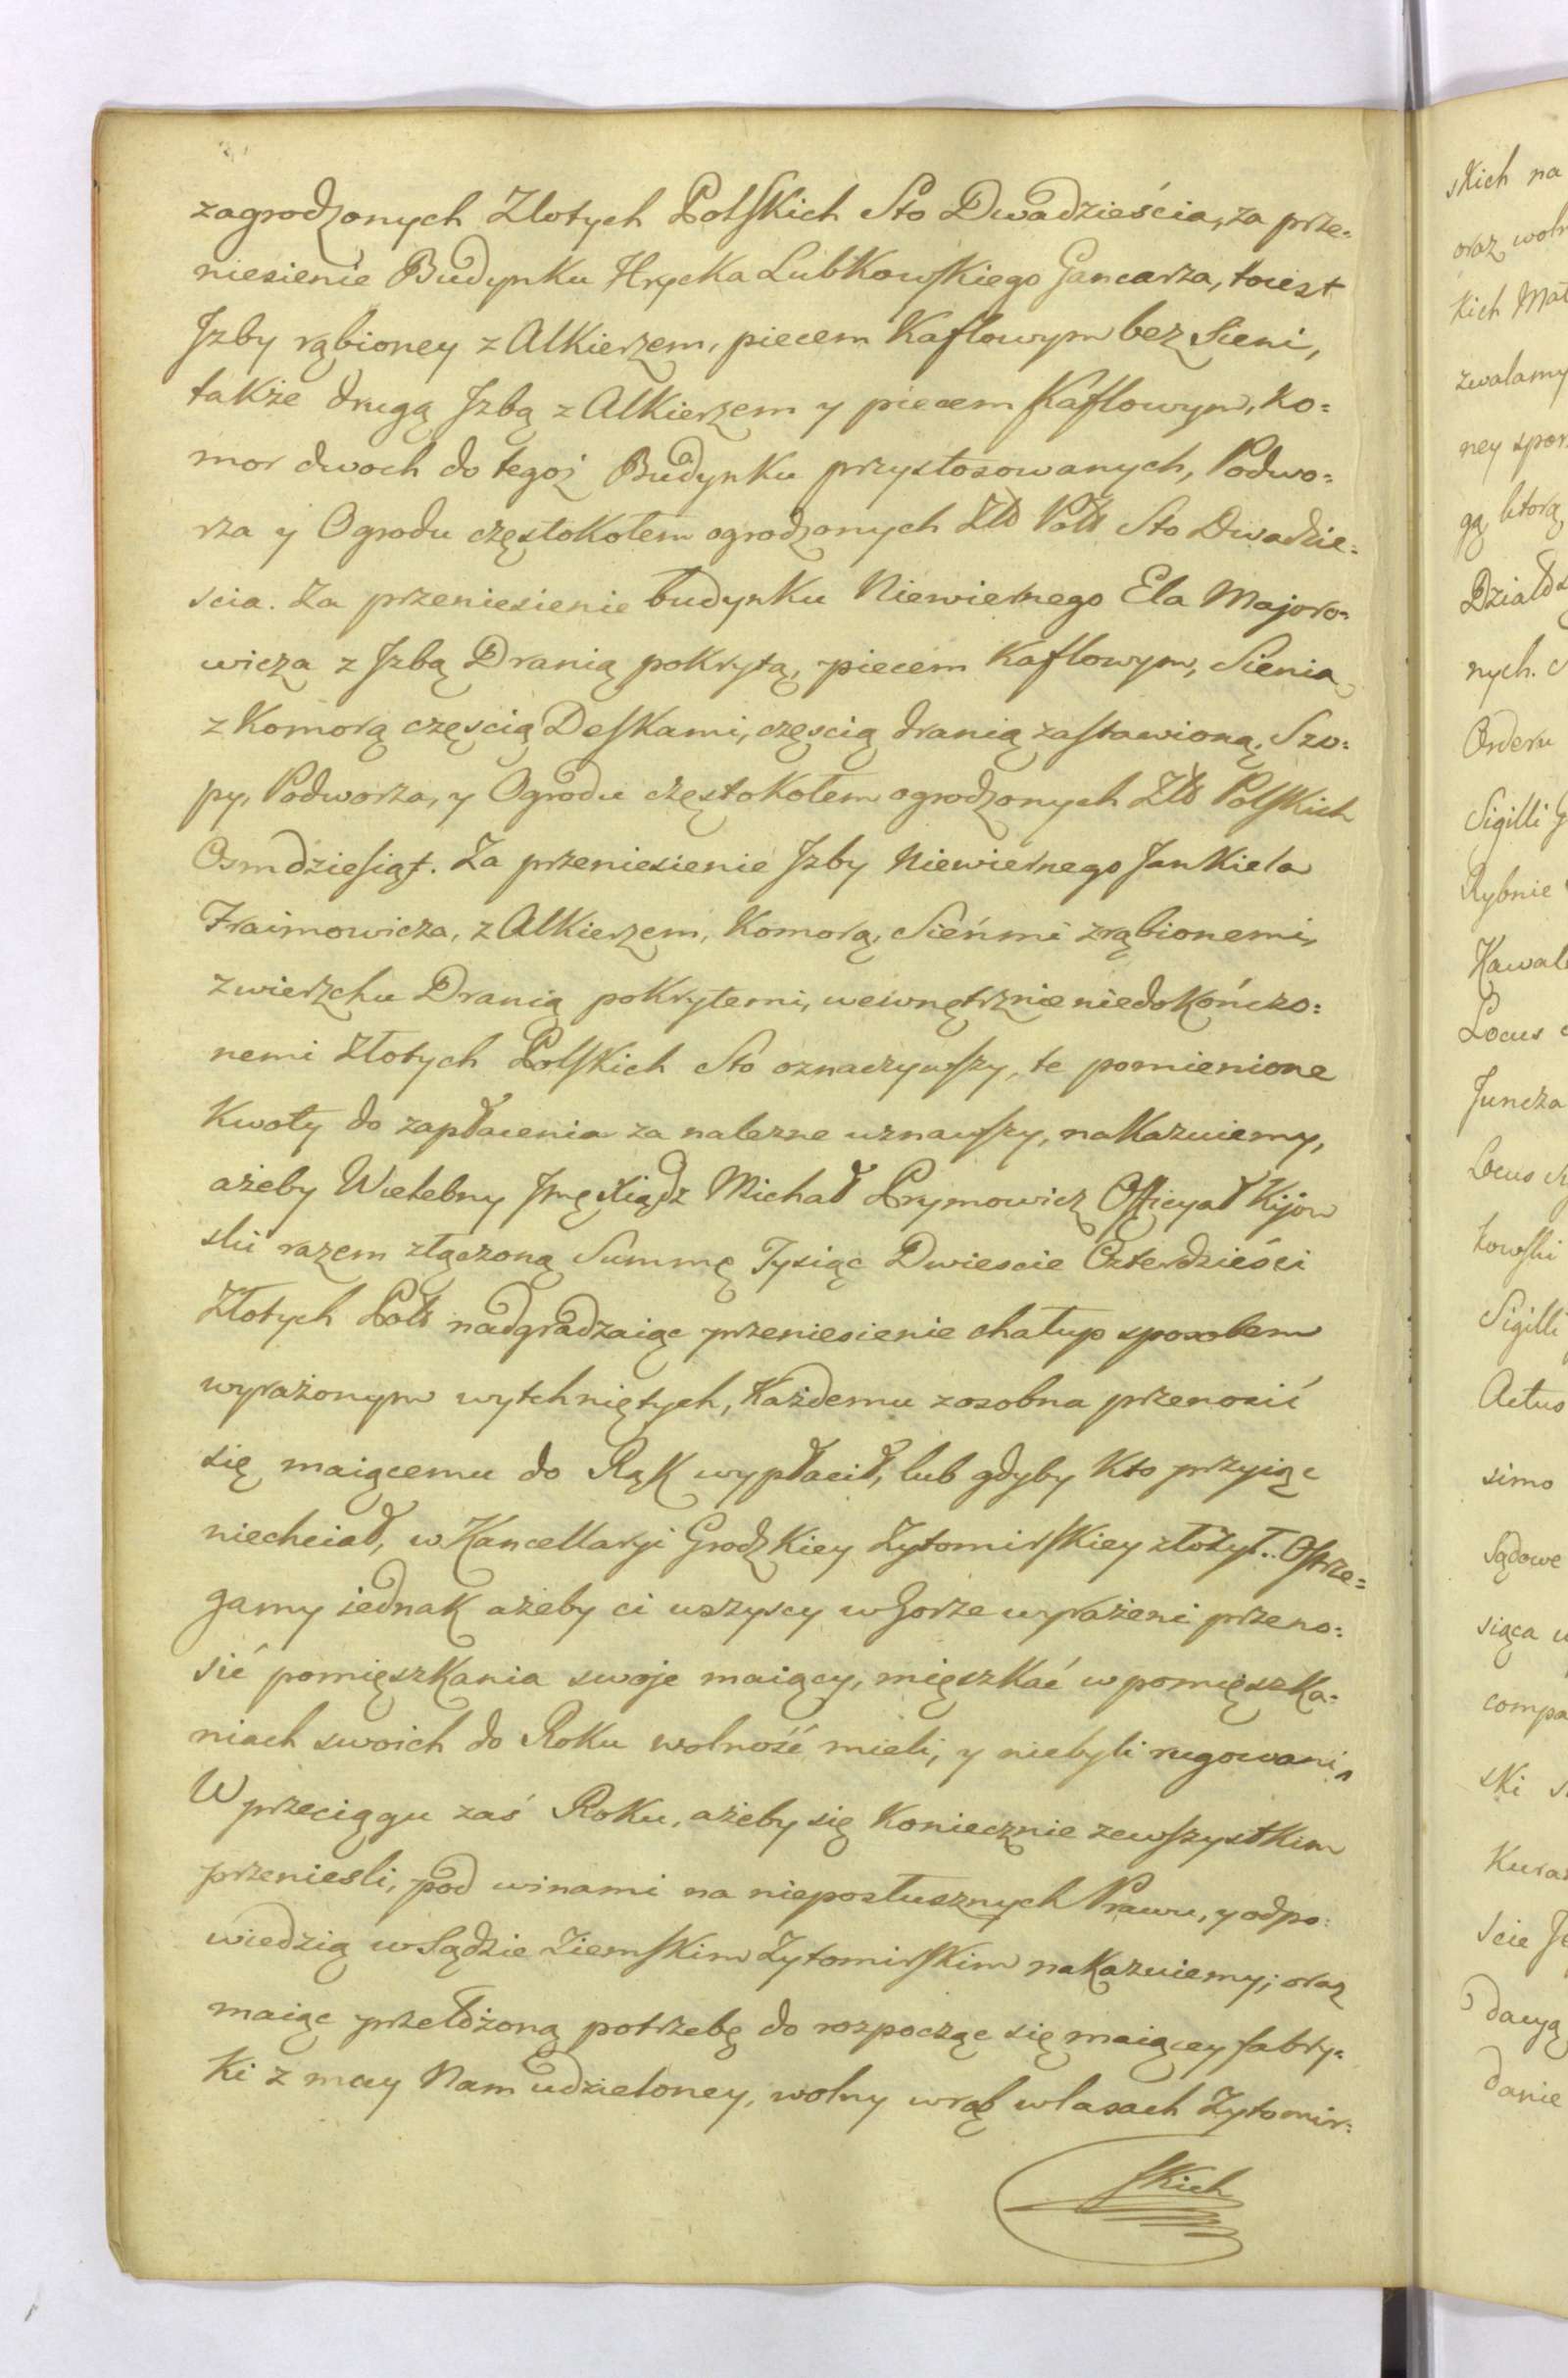 zagrodzonych Złotych Polskich Sto Dwadzieścia, za prze=
niesienie Budynku Hrycka Lubkowskiego Gancarza, toiest
Jzby rąbioney z Alkierzem, piecem Kaflowym bez Sieni,
także drugą Jzbą z Alkierzem y piecem Kaflowym, ko=
mor dwoch do tegoż Budynku przystosowanych, Podwo=
rza y Ogrodu częstokołem ogrodzonych Złł Polł Sto Dwadzie=
scia. Za przeniesienie budynku Niewiernego Ela Majoro=
wicza z Jzbą Dranią pokrytą, piecem Kaflowym, Sienią
z Komorą częscią Deskami, częscią dranią zastawioną, Szo=
py, Podworza, y Ogrodu częstokołem ogrodzonych Złł Polskich
Osmdziesiąt. Za przeniesienie Jzby Niewiernego Jankiela
Fraimowicza, z Alkierzem, Komorą, Sieńmi zrąbionemi,
zwierzchu Dranią pokrytemi, wewnętrznie niedokończo=
nemi Złotych Polskich Sto oznaczywszy, te pomienione
Kwoty do zapłacenia za nalezne uznawszy, nakazuiemy,
ażeby Wielebny Jmę Xiądz Michał Prymowicz Officyał Kijow
ski razem złączoną Summę Tysiąc Dwiescie Czterdzieści
Złotych Polł nadgradzaiąc przeniesienie chałup sposobem
wyrażonym wytchniętych, Każdemu zosobna przenosić
się maiącemu do Rąk wypłacił, lub gdyby Kto przyiąc
niechciał, w Kancellaryi Grodzkiey Zytomirskiey złożył.. Ostrze=
gamy iednak ażeby ci wszyscy w Gorze wyrażeni przeno=
sić pomięszkania swoje maiący, mięszkać w pomięszka=
niach swoich do Roku wolność mieli, y niebyli rugowani,
W przeciągu zaś Roku, ażeby się Koniecznie zewszystkim
przeniesli, pod winami na nieposłusznych Prawu, y odpo=
wiedzią w Sądzie Ziemskim Zytomirskim nakazuiemy; oraz
maiąc przełożoną potrzebę do rozpocząc się maiącey fabry=
Ki z mocy Nam udzieloney, wolny wrąb w lasach Zytomir=
skich
skich na
oraz woln
kich Mat
zwalamy
ney spor
gą ktorą
Działo s
nych.
Orderu
Sigilli G
Rybnie
Kawale
Locus
Juncza
Locus
kowski
Sigilli
Actus
simo
Sądowe
siąca
compa
ski
Kuras
scie
dacyą
danie